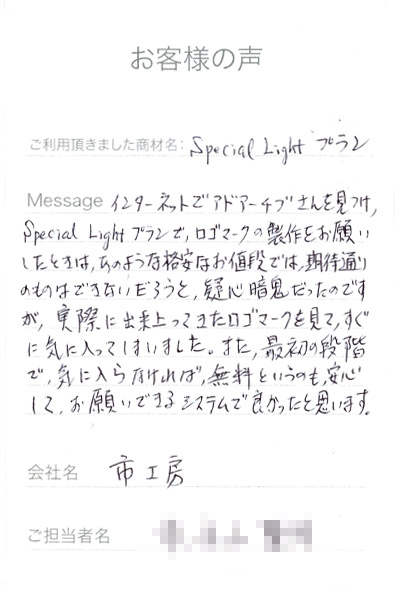 お客様の声
ご利用頂きました商材名: Special Light プラン
Message インターネットでアドアーチブさんを見つけ,
Special Light プランで,ロゴマークの製作をお願い
したときは,あのような格安なお値段では,期待通り
のものはできないだろうと,疑心暗鬼だったのです
が,実際に出来上ってきたロゴマークを見て,すぐ
に気に入ってしまいました。また,最初の段階
で,気に入らなければ,無料というのも,安心
して,お願いできるシステムで良かったと思います。
会社名 市工房
ご担当者名